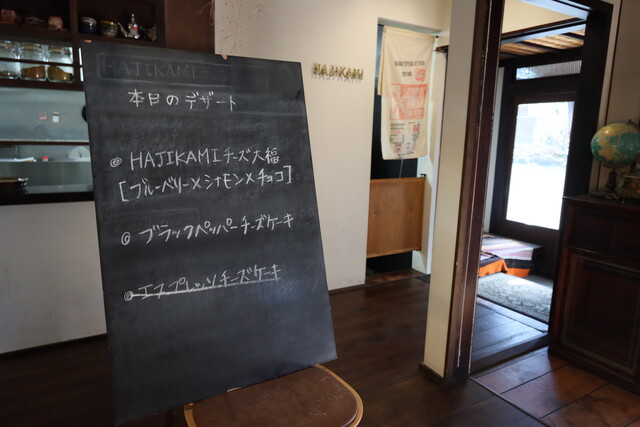 HAJIKAMI
本日のデザート
◎ HAJIKAMIチーズ大福
[ブルーベリー×シナモン×チョコ]
◎ ブラックペッパーチーズケーキ
◎ エスプレッソチーズケーキ
HAJIKAMI